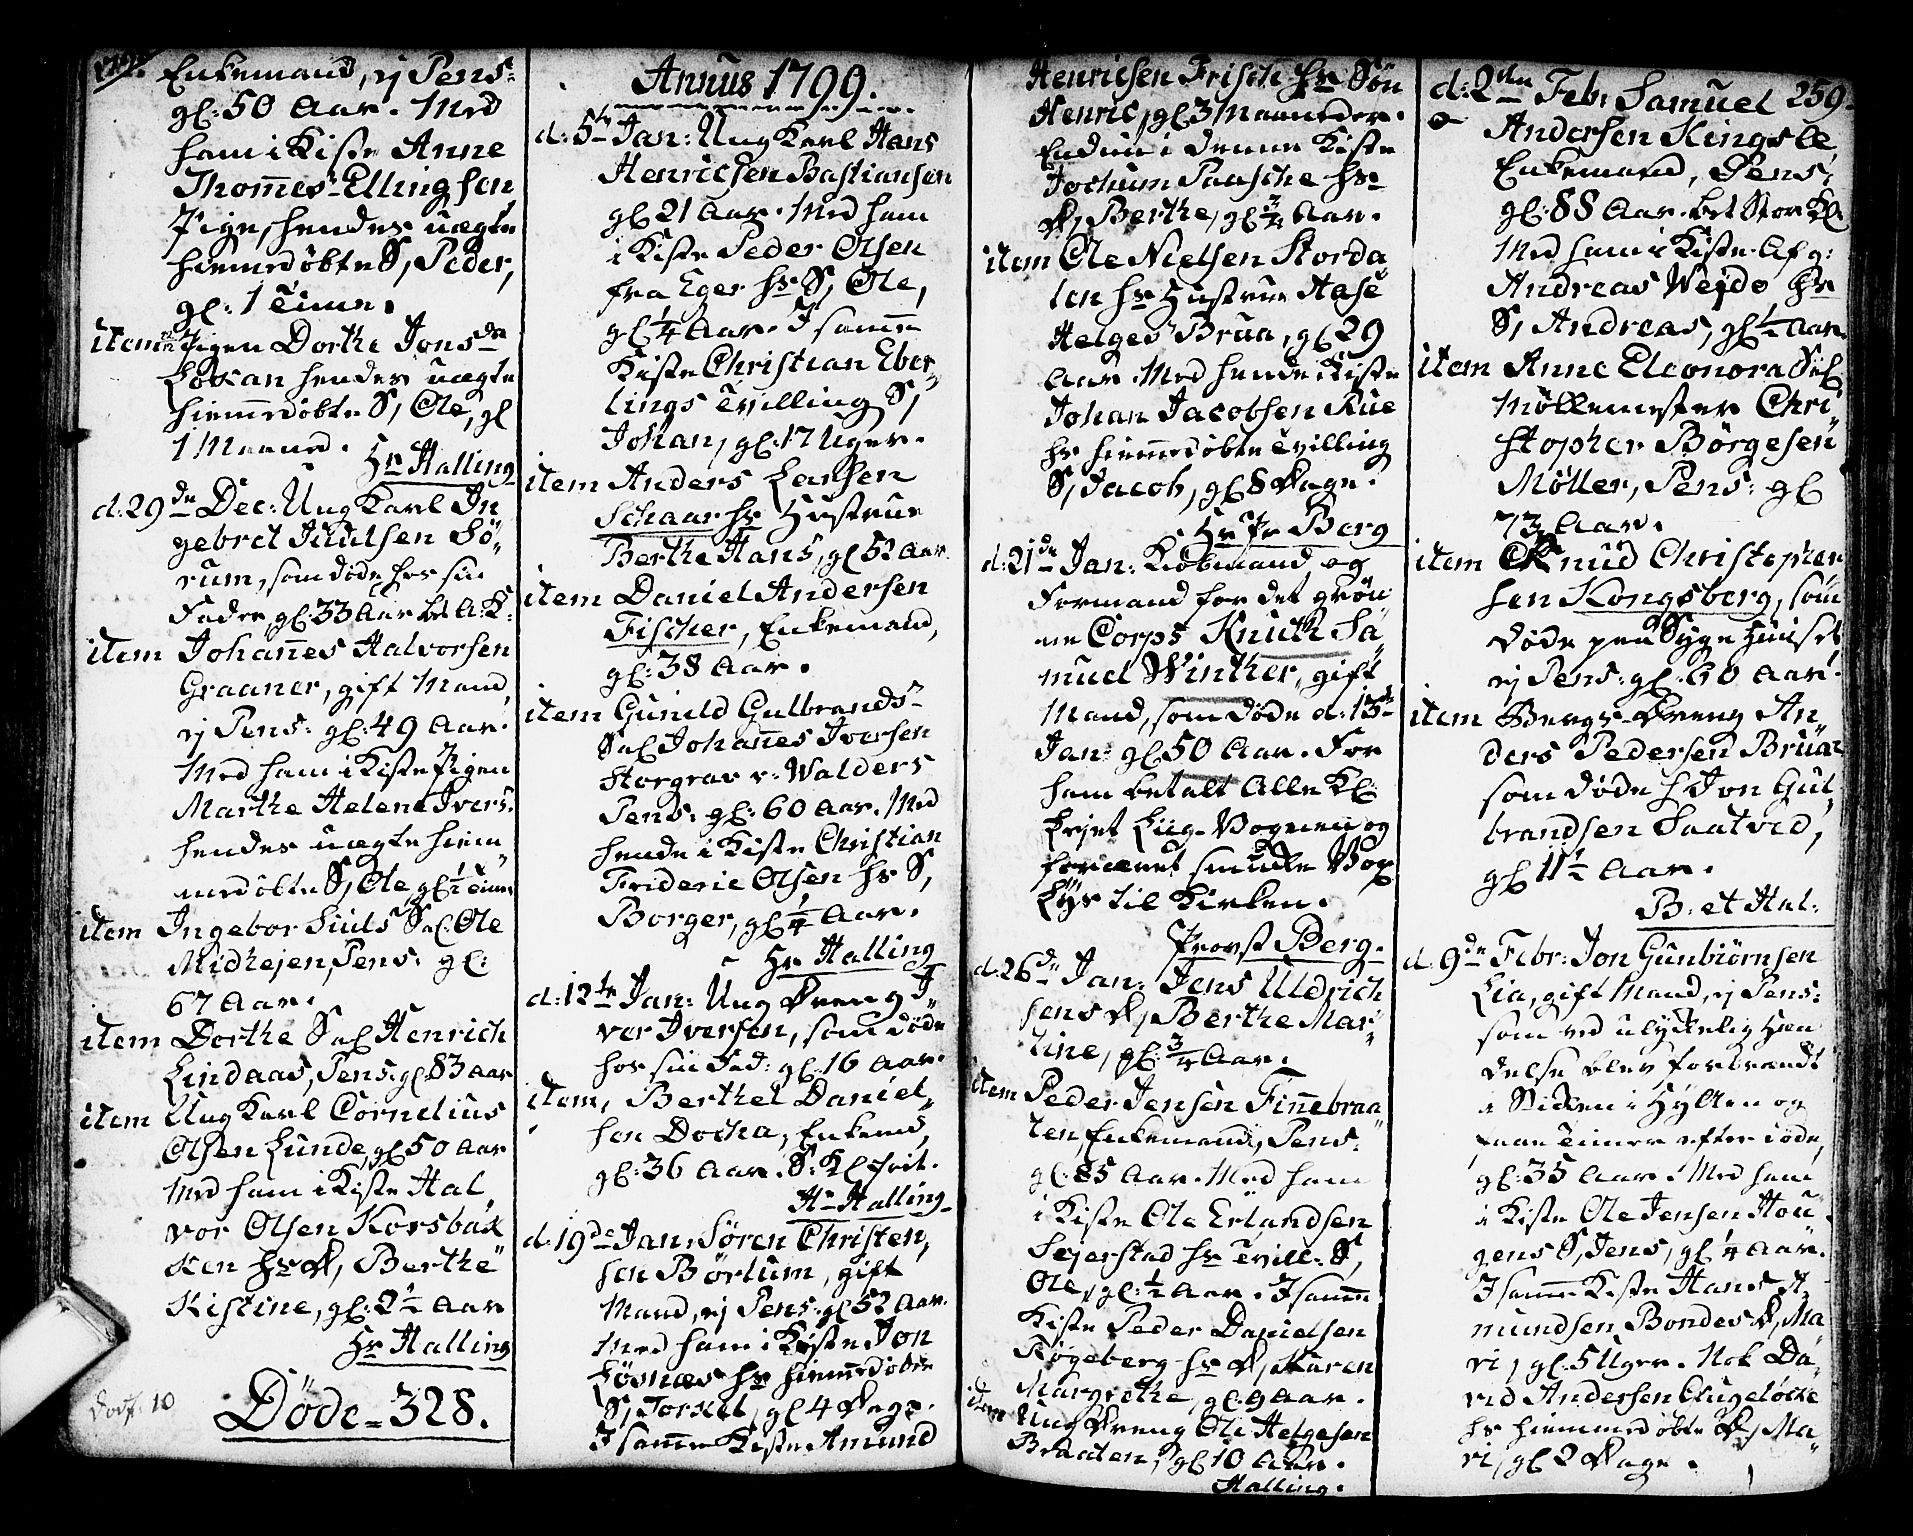 Enkemand, ej Pens:
gl: 50 Aar. Med
ham i Kiste Anne
Thomes-Ellingsen
Pige, hendes uægte
hiemedøbte S, Peder,
gl: 1 Time.
item Pigen Dorthe Jons dr
hendes uægte
hiemedøbte S, Ole, gl
1 Maaned. Hr Halling
d: 29de Dec: Ung Karl In
gebret Juulsen Sø-
rum, som døde hos sin
Fader, gl: 33 Aar bet A. K:
item Johannes Halvorsen
Graaner, gift Mand,
ej Pens: gl: 49 Aar.
Med ham i Kiste Pigen
Marthe Helene Ivers.
hendes uægte hiem
medøbte S, Ole gl 1/2 Time
item Ingebor Juuls Sal: Ole
Midhejen, Pens: gl:
67 Aar.
item Dorthe Sal Henrich
Lindaas, Pens: gl: 83 Aar
item Ung Karl Cornelius
Olsen Lunde, gl: 50 Aar
Med ham i Kiste Hal
vor Olsen Korsbak
ken hs D, Berthe
Kistine, gl: 2 1/2 Aar
Hr Halling
Dødf. 10
Døde = 328.
Annus 1799.
d: 5te Jan: Ung Karl Hans
Henricsen Bastiansen
gl 21 Aar. Med ham
i Kiste Peder Olsen
fra Eger hs S, Ole,
gl 1/4 Aar. I samme
Kiste Christian Eber-
lings Tvilling S,
Johan, gl: 17 Uger.
item Anders Larsen
Schaar hs Hustrue
Berthe Hans, gl 52 Aar.
item Daniel Andersen
Fischer, Enkemand,
gl: 38 Aar.
item Gunild Gulbrands-
Sal Johannes Iversen
Storgrav v: Walders
Pens: gl: 60 Aar. Med
hende i Kiste Christian
Frideric Olsen hs S,
Borger, gl 1/4 Aar.
Hr Halling
d: 12te Jan: Ung Dreng I-
ver Iversen, som døde
hos sin Fad: gl: 16 Aar.
item, Berthel Daniel,
sen Docka, Enkemd,
gl: 36 Aar. S: Kl frit.
Hr Halling
d: 19de Jan: Søren Christen,
sen Børtum, gift
Mand, ej Pens: gl 52 Aar.
Med ham i Kiste Jon
Løsnæs hs hiemedøbte
S, Torkel, gl 4 Dage.
I samme Kiste Amund
Henricsen Frisch hs Søn
Henric, gl 3 Maaneder.
Endnu i denne Kiste
Jochum Paasche hs
D, Berthe, gl: 3/4 Aar.
item Ole Nielsen Storda
len hs Hustrue Aase
Helges Brua, gl 29
Aar. Med hende i Kiste
Johan Jacobsen Rue
hs hiemedøbte Tvilling
S, Jacob, gl 8 Dage.
Hr Pr Berg
d: 21de Jan: Kiøbmand og
Formand for det grøn
ne Corps Knuth Sa
muel Winther, gift
Mand, som døde d: 13de
Jan: gl 50 Aar. For
ham betalt Alle Kl:
Lejet Liig-Vognen og
foræret smukke Vox
Lys til Kirken.
Provst Berg.
d: 26de Jan: Jens Uldrich
sens D, Berthe Mar-
tine, gl: 3/4 Aar.
item Peder Jensen Finnebraa
ten, Enkemand, Pens:
gl: 85 Aar. Med ham
i Kiste Ole Erlandsen
Sejerstad hs Tvill: S,
Ole, gl: 1/2 Aar. I samme
Kiste Peder Danielsen
Køgeberg hs D, Karen
Margrethe, gl: 9 Aar.
item Ung Dreng Ole Helgesen
Braaten, gl 10 Aar.
Halling.
259.
d: 2den Febr: Samuel
Andersen Kingsle
Enkemand, Pens:
gl: 88 Aar. bet Stor Kl
Med ham i Kiste Afg:
Andreas Wejdo hs
S, Andreas, gl 1/2 Aar.
item Anne Eleonora Sal
Møllemester Chri-
stopher Børgesen
Møller, Pens: gl
73 Aar.
item Knud Christopher
sen Kongsberg, som
døde paa Syge Huuset
ej Pens: gl: 60 Aar.
item Bergs-Dreng An
ders Pedersen Bruar
som døde h Jon Gul
brandsen Saatved,
gl 11 1/2 Aar.
B: et Hal:
d: 9de Febr: Jon Gunbiørnsen
Lia, gift Mand, ej Pens:
som ved ulykkelig Hæn
delse blev forbrændt
i Stikken i Hytten og
faae Timer efter døde,
gl: 35 Aar. Med ham
i Kiste Ole Jensen Hou
gens S, Jens, gl 1/4 Aar.
I samme Kiste Hans A,
mundsen Bondes D, Ma
ri, gl: 5 Uger. Nok Da-
vid Andersen Engeløkke
hs hiemmedøbte D, Ma
ri, gl 2 Dage.